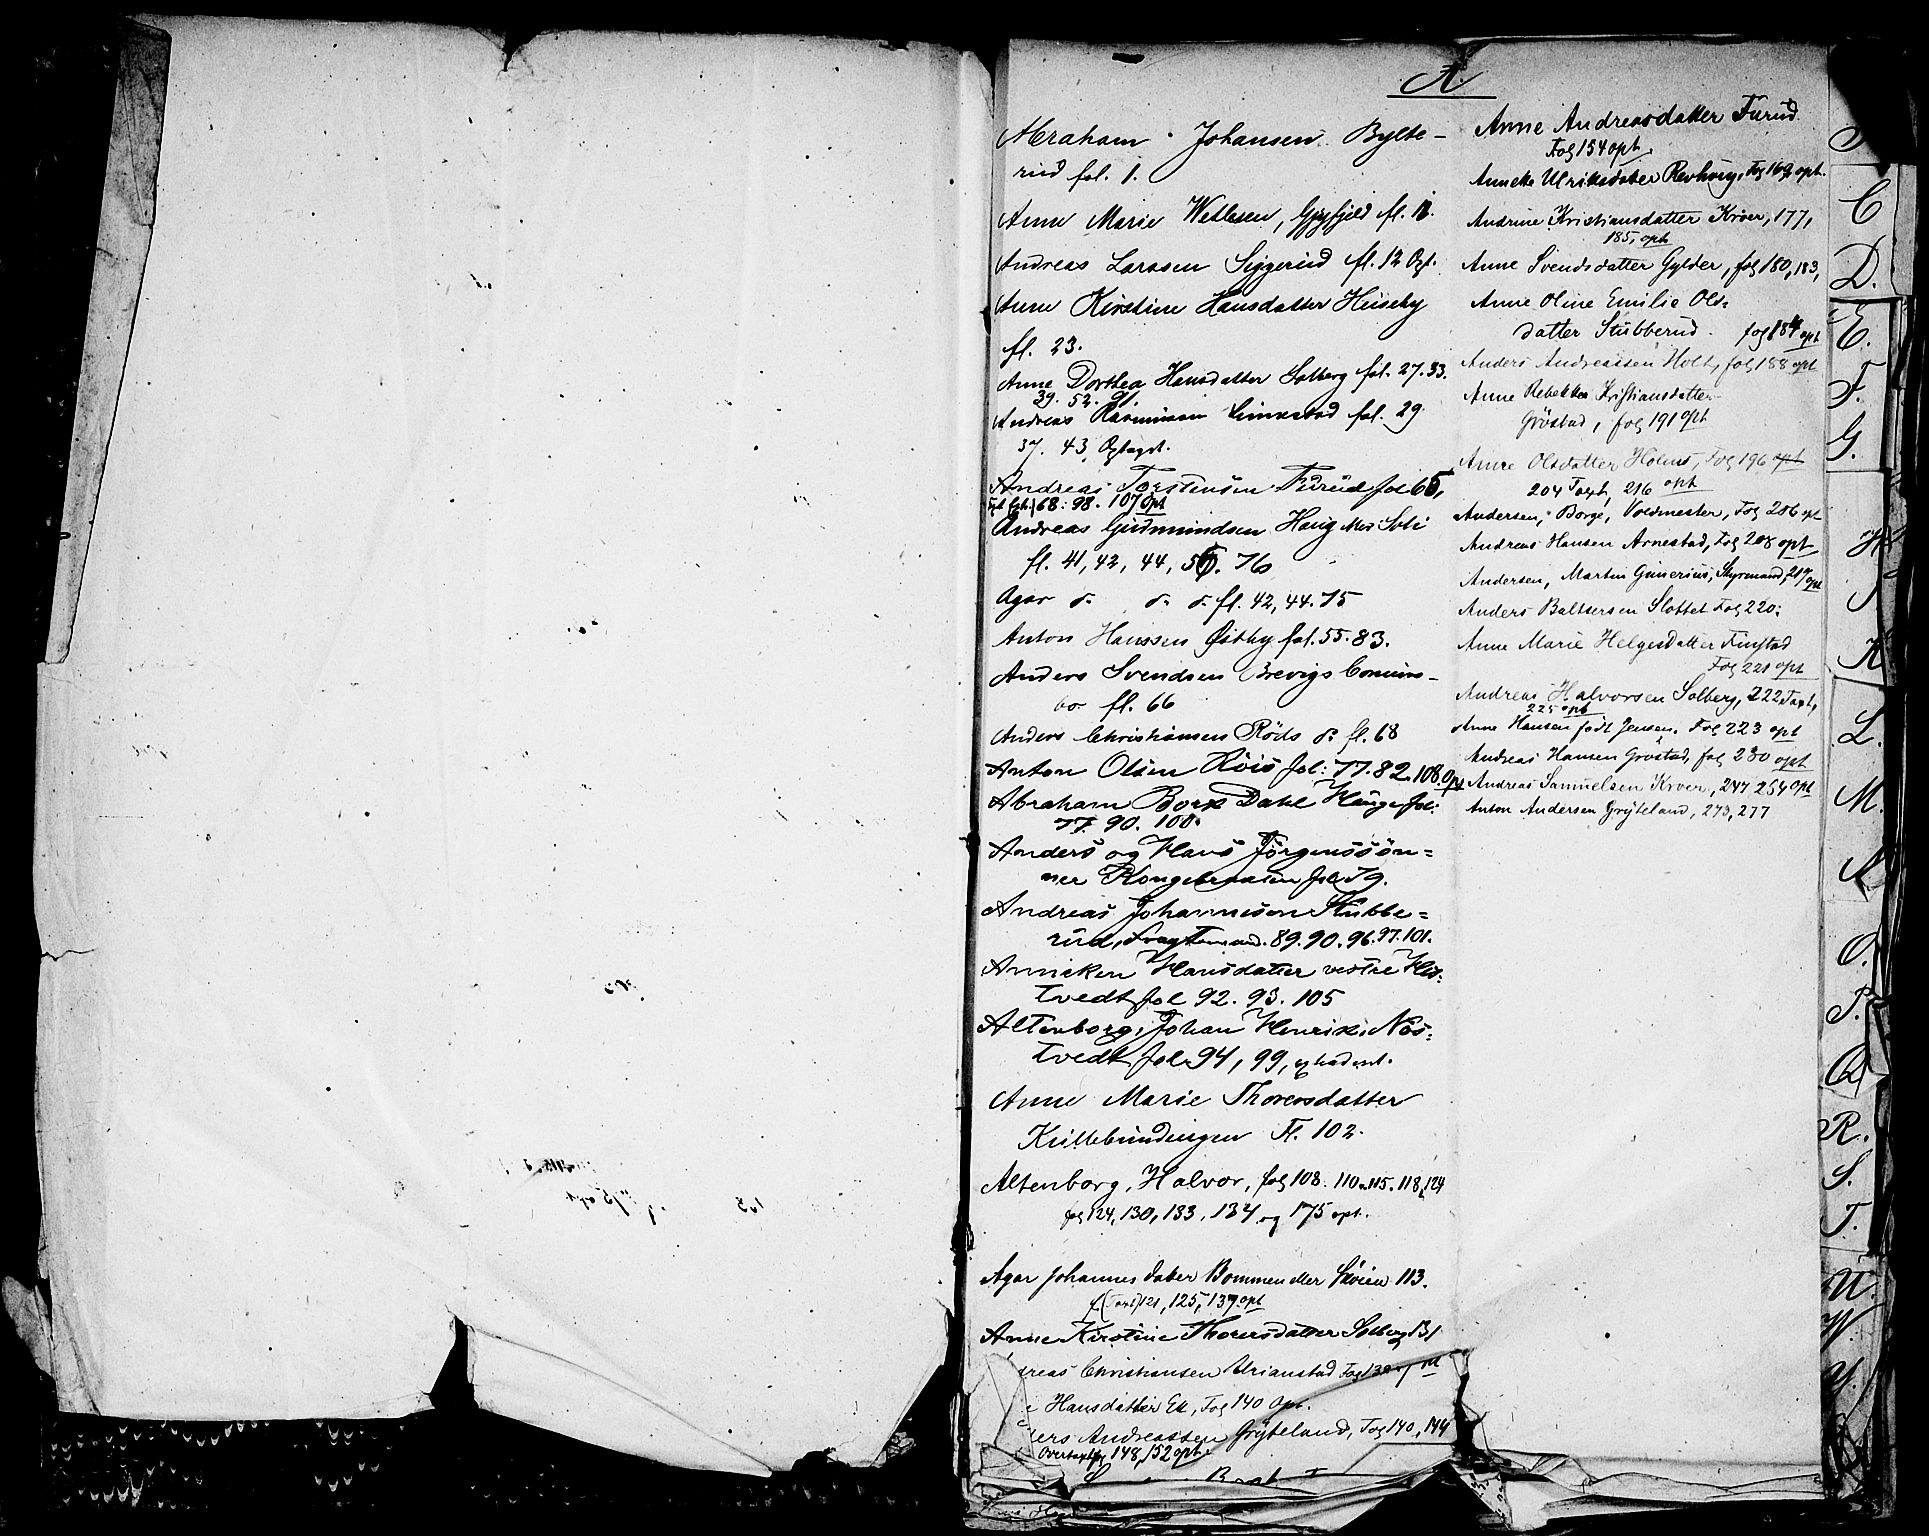 A.
Abraham Johansen Bylte-
rud fol. 1.
Anne Marie Wetlesen, fl. 11.
Andreas Larssen Siggerud fl. 12 Opt.
Anne Kirstine Hansdatter Huseby
fl. 23.
Anne Dorthea Hansdatter Solberg fol. 27. 33.
39. 52. 91.
Andreas Rasmussen fol. 29
37. 43. Optaget.
Andreas Torstensen Furud fol 65,
68. 98. 107 Opt
Andreas Gudmundsen Haug
fl. 41, 42, 44, 76
Agar do do do fl. 42, 44. 75
Anton Hanssen Østby fol. 55. 83.
Anders Svendsen Brevigs
bo fl. 66
Anders Christiansen Röds do fl. 68
Anton Olsen Röis fol: 77. 82. 108. Opt
Abraham Bork Dahl Hauge fol:
77. 90. 100.
Anders og Hans Jörgenssön=
ner Kongebraaten fol 79.
Andreas Johannison Stubbe=
rud, 89. 90. 96. 97. 101.
Anneken Hansdatter vestre
tvedt fol 92. 93. 105
Altenborg, Johan Henrik, Nös=
tvedt fol 94, 99,
Anne Marie Thorersdatter
Kullebundingen Fl. 102.
Altenborg, Halvor, fol 108. 110. 115. 118, 124
fol 124, 130, 133, 134 og 175 opt.
Agar Johannesdatter Bommen eller Skoien 113.
121, 125, 137 opt
Anne Kirstine Thorersdatter Solberg 131
reas Christiansen Urianstad Fol 139 opt
e Hansdatter Ek, Fol 140 Opt.
ers Andreassen Gryteland, Fol 140, 144
148, 152 opt.
Anne Andreasdatter Furud
Fol 154 opt.
Anneke Ulriksdatter Revhaug, Fol 169 opt.
Andrine Kristiansdatter Kröer, 177,
185, opt
Anne Svendsdatter Gylder, fol 180, 183,
Anne Oline Emilie Ols=
datter Stubberud. fol 184 opt
Anders Andreassen Holt, fol 188 opt
Anne Rebekka Kristiansdatter
Gröstad, fol 191 opt
Anne Olsdatter Holms, Fol 196 opt
204 Taxt, 216 opt
Andersen, Borge, Voldmester, Fol 206 opt
Andreas Hansen Arnestad, Fol 208 opt,
Andersen, Martin Gunerius, Styrmand, 217 opt
Anders Baltsersen Slottet Fol 220.
Anne Marie Helgesdatter Finstad
Fol 221 opt
Andreas Halvorsen Solberg, 222 Taxt,
225 opt
Anne Hansen födt Jensen. Fol 223 opt
Andreas Hansen Gröstad, fol 230 opt
Andreas Samuelsen Kröer, 247 254 opt
Anton Andersen Gryteland, 273, 277
C
D.
E.
F.
G.
H
I
K
L.
M.
N
O.
P.
Q
R.
S.
T.
U.
W.
Y.